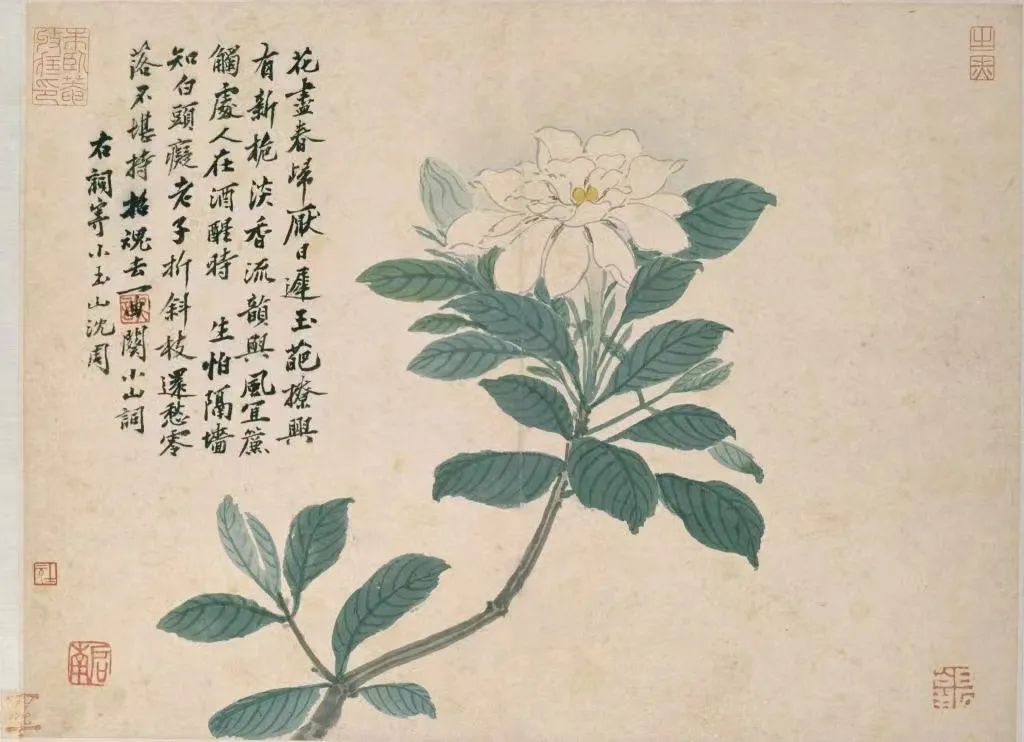 花盡春歸厭日遲玉葩撩興
有新梔淡香流韻與風宜簾
觸處人在酒醒時 生怕隔牆
知白頭癡老子折斜枝還愁零
落不堪持招魂去一曲闋小山詞
右詞寄小重山沈周
啟南